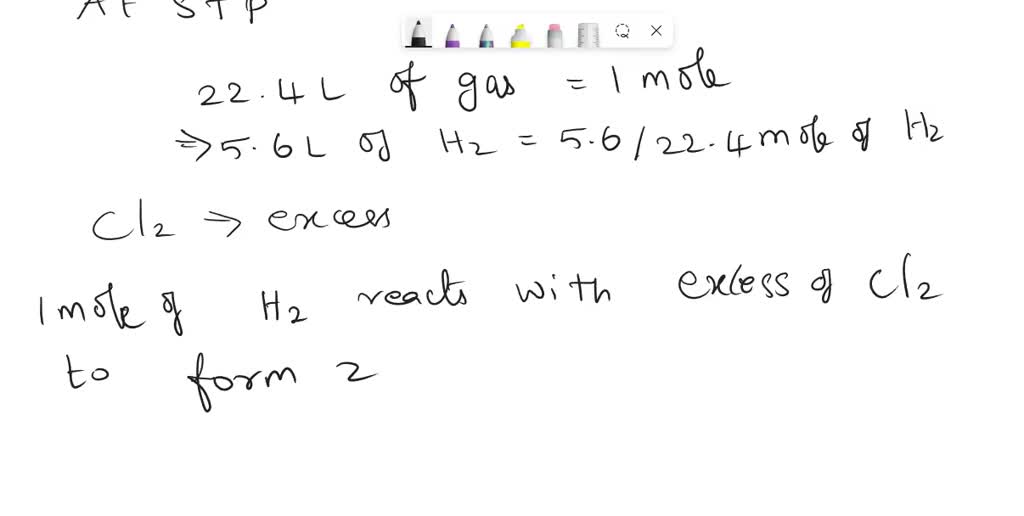 AT STP
22.4L of gas = 1 mole
⇒ 5.6L of H2 = 5.6/22.4 mole of H2
Cl2 ⇒ excess
1 mole of H2 reacts with excess of Cl2
to form 2